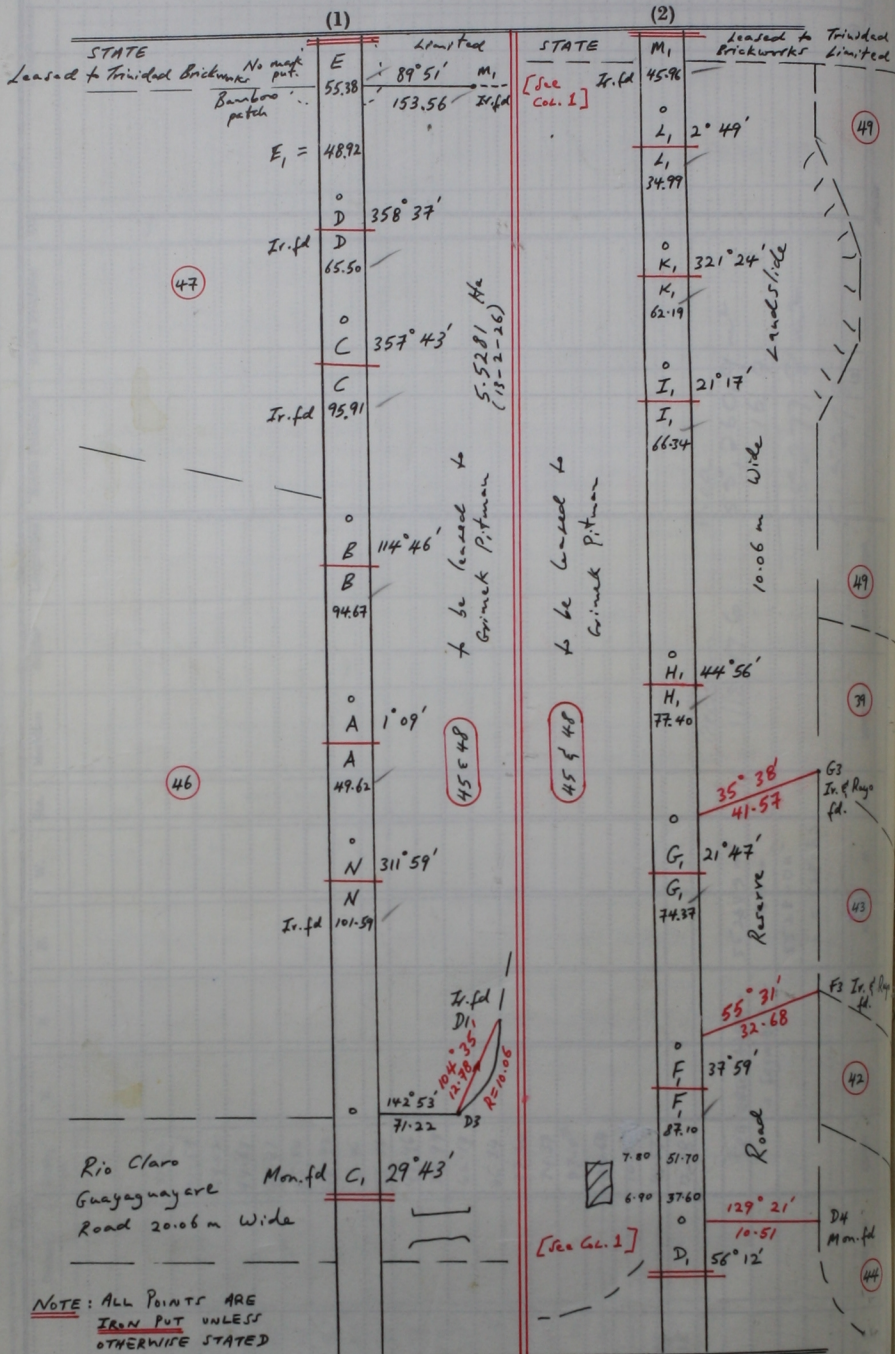 (1)
STATE
Limited
Leased to Trinidad Brickworks
No mark put.
Bamboo patch
E
55.38
89°51'
153.56
M₁
Ir.fd
E₁ = 48.92
o
D 358°37'
Ir.fd D
65.50
47
o
C 357°43'
C
Ir.fd 95.91
5.5281 Ha
(13-2-26)
to be leased to
Grimek Pitman
o
B 114°46'
B
94.67
o
A 1°09'
A
49.62
45 & 48
46
o
N 311°59'
N
Ir.fd 101.59
Ir.fd
D1,
104°35'
12.78
R=10.06
o
142°53'
71.22
D3
Rio Claro
Guayaguayare
Road 20.06 m Wide
Mon.fd C₁ 29°43'
NOTE: ALL POINTS ARE
IRON PUT UNLESS
OTHERWISE STATED
(2)
STATE
Leased to Trinidad
Brickworks Limited
[See
Col. 1]
Ir.fd
M₁
45.96
o
L₁ 2°49'
L₁
34.99
49
o
K₁ 321°24'
K₁
62.19
Landslide
o
I₁ 21°17'
I₁
66.34
to be leased to
Grimek Pitman
10.06 m Wide
49
o
H₁ 44°56'
H₁
77.40
39
45 & 48
35°38'
41.57
G3
Ir. & Rngo
fd.
o
G₁ 21°47'
G₁
74.37
Reserve
43
55°31'
32.68
F3 Ir. &
fd.
o
F₁ 37°59'
F₁
87.10
42
Road
7.80 51.70
6.90 37.60
o
129°21'
10.51
D4
Mon.fd
[See Col. 1]
D₁ 56°12'
44